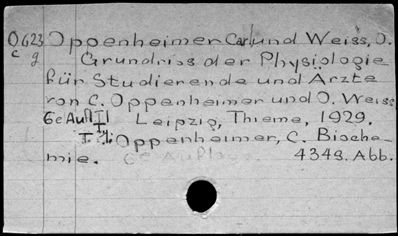 O 623 Oppenheimer Carl und Weiss, O.
c g Grundriss der Physiologie
für Studierende und Ärzte
von C. Oppenheimer und O. Weiss
6e Aufl Leipzig, Thieme, 1929.
I. Oppenheimer, C. Bioche-
mie. 6e Auflage. 434S. Abb.